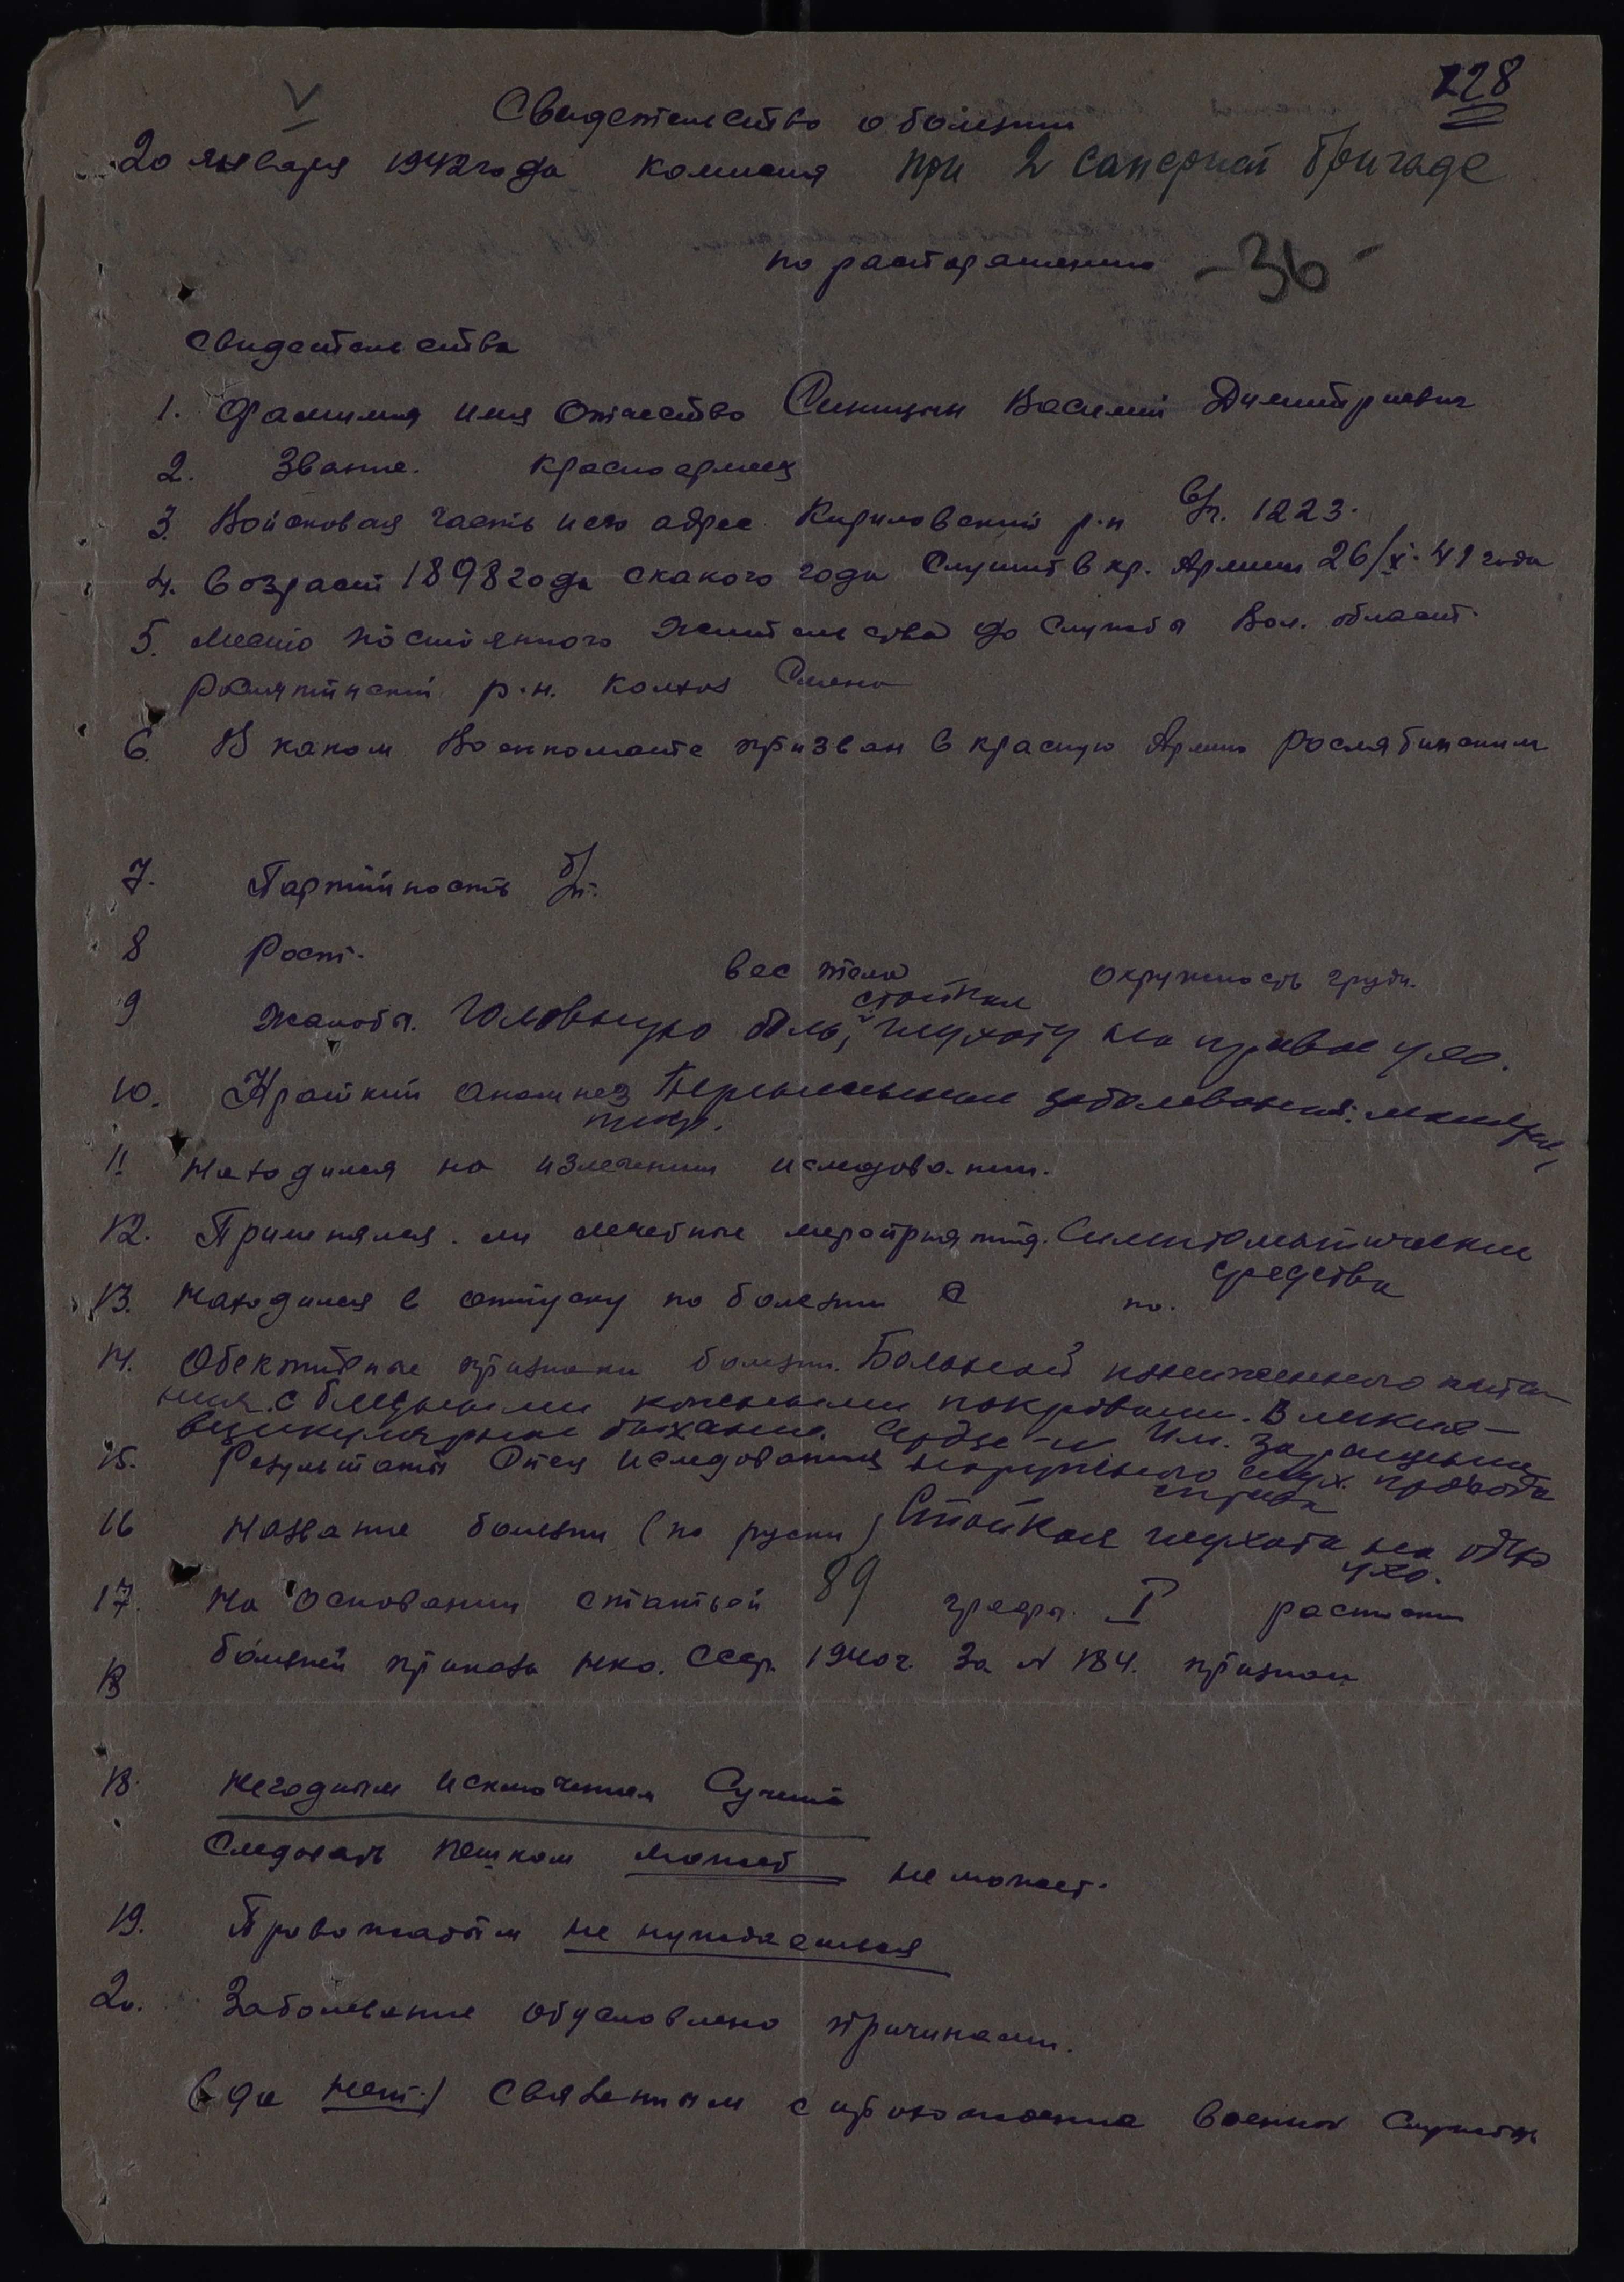 228
V
Свидетельство о болезни
20 января 1942 года комисия при 2 саперной бригаде
по расторашению -36-
Свидетельства
1. Фамилия имя Отчество Синицын Василий Димитриевич
2. Звание. Красноармеец
3. Войсковая часть и его адрес Кириловский р-н в/ч. 1223.
4. Возраст 1898 года с какого года Служит в кр. Армии 26/X-41 года
5. Место постоянного жительства до службы Вол. област.
Рослятинский р.н. Колхоз Смена
6. В каком Военкомате призван в красную Армию Рослятинским
7. Партийность б/п.
8 Рост. вес тела Окружность груди.
9 Жалобы. Головную боль, стойкая глухоту на правое ухо.
10. Краткий анамнез Перенесенные заболевания: малярия,
тиф.
11 Находился на излечении иследовании.
12. Применялся ли лечебные мероприятия. Симптоматические
средства
13. Находился в отпуску по болезни с по.
14. Обективные признаки болезни. Больной пониженного пита-
ния с бледными кожными покровами. В легких -
везикулярное дыхание. Сердце - N Им. Заращение
15. Результаты Спец иследования наружного слух. прохода
справа
16 Название болезни (по руски) Стойкая глухота на одно
ухо.
17. На основании статьей 89 графы I распис
болезней приказа НКО. СССР. 1940 г. За N 184. признан
18
18. Негодным исключением Сучета
Следовать пешком может не может.
19. Провожатым не нуждается
20. Заболевание обусловлено причинами.
(да нет) Связенным с прохождение военной Службы